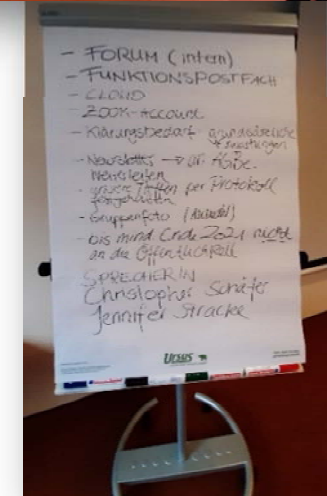 - FORUM (intern)
- FUNKTIONSPOSTFACH
- CLOUD
- ZOOM-Account
- Klärungsbedarf grundsätzliche
- Newsletter → an
Weiterleiten
- unsere per Protokoll
festgehalten
- Gruppenfoto
- bis mind. Ende 2021 nicht
an die Öffentlichkeit
SPRECHER:IN
Christopher Schäfer
Jennifer Stracke
URSUS